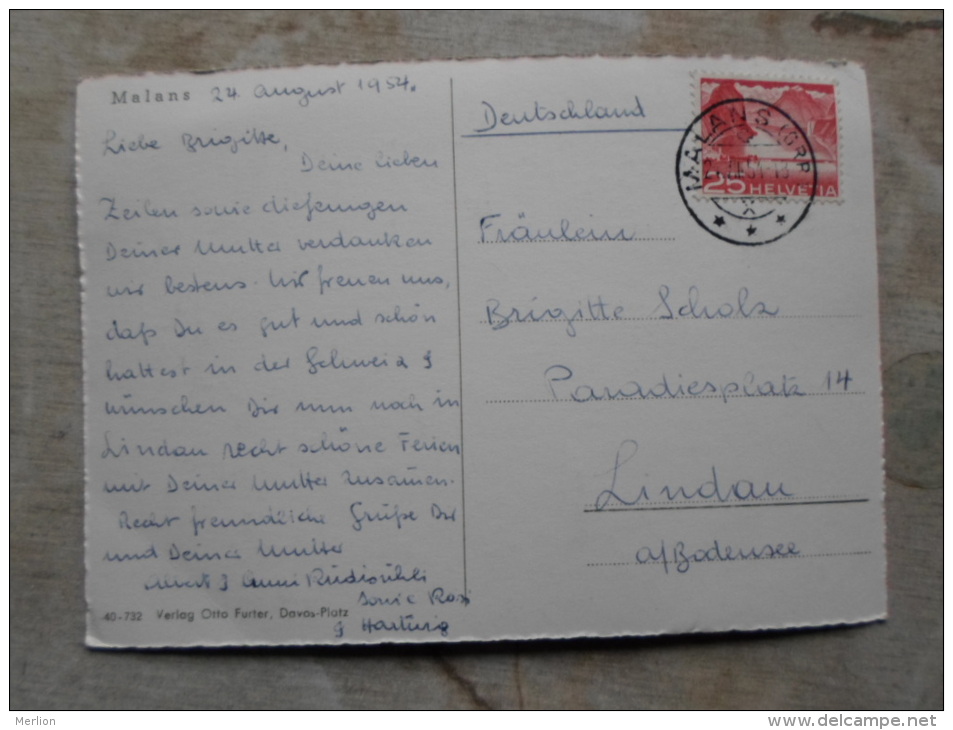 Malans 24. August 1954.
Liebe Brigitte,
Deine lieben
Zeilen sowie diejenigen
Deiner Mutter verdanken
wir bestens. Wir freuen uns,
daß Du es gut und schön
hattest in der Schweiz &
wünschen Dir nun noch in
Lindau recht schöne Ferien
mit Deiner Mutter zusamen.
Recht freundliche Grüße Dir
und Deiner Mutter
Albert & Anni Rüdisühli
sowie Rosi
& Hartwig
40-732 Verlag Otto Furter, Davos-Platz
Deutschland
MALANS (GRB)
25 HELVETIA
Fräulein
Brigitte Scholz
Paradiesplatz 14
Lindau
a/Bodensee
Merlion
www.delcampe.net